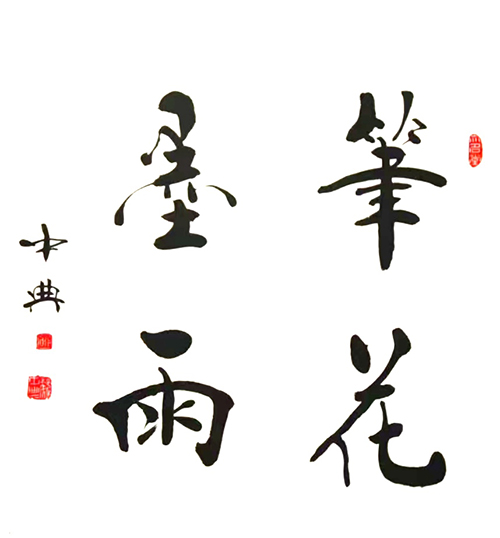 筆花
墨雨
中典